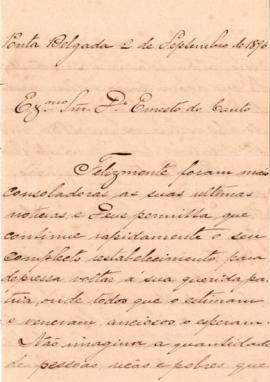 Ponta Delgada 2 de Septembro de 1896
Exmo Snr. Dr. Ernesto do Canto
Felizmente foram mais
consoladoras as suas ultimas
noticias e Deus permitta que
continue rapidamente o seu
completo restabelecimento, para
depressa voltar á sua querida pa-
tria, onde todos que o estimam
e veneram anciosos o esperam.
Não imagina a quantidade
de pessoas, ricas e pobres que